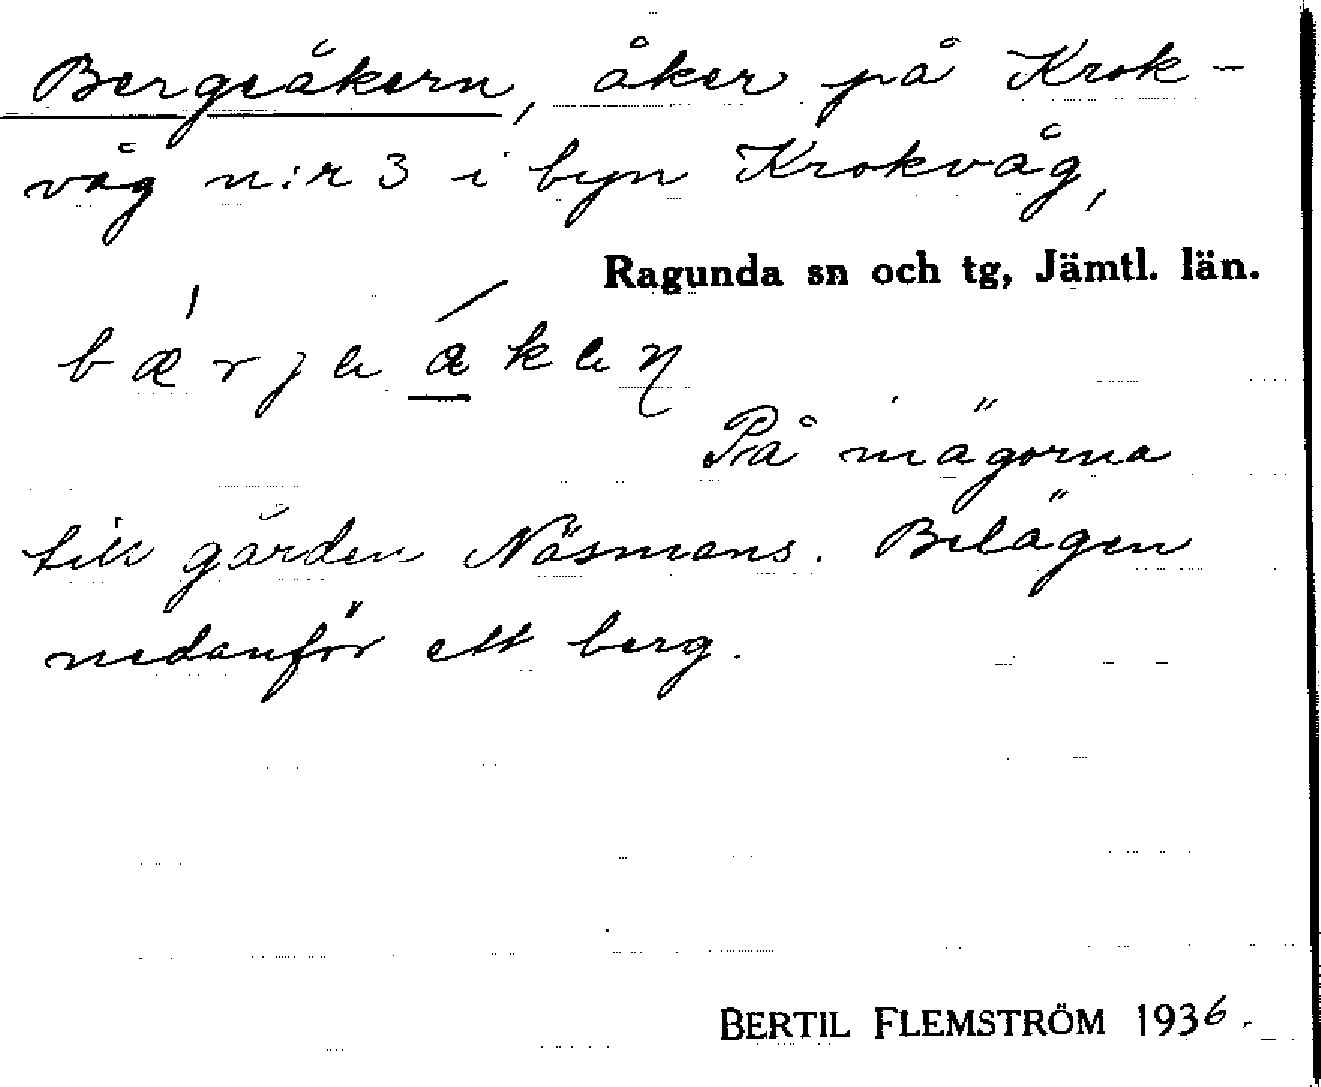 Bergeåkern, åker på Krok-
våg n:r 3 i byn Krokvåg,
Ragunda sn och tg, Jämtl. län.
På inägorna
till gården Näsmans. Belägen
nedanför ett berg.
BERTIL FLEMSTRÖM 1936.